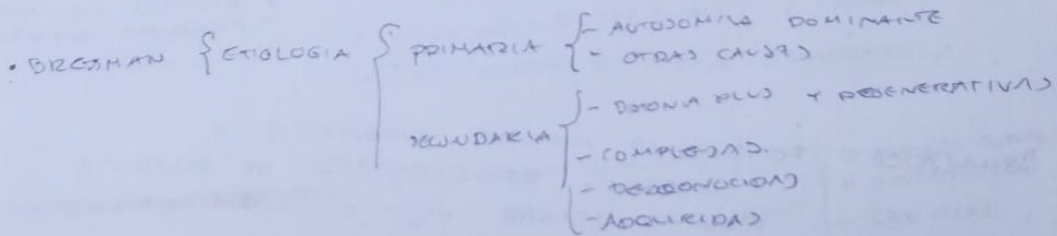 • BRESMAN { ETIOLOGIA { PRIMARIA { - AUTOSOMICA DOMINANTE
- OTRAS CAUSAS
SECUNDARIA { - DISTONIA PLUS Y DEGENERATIVAS
- COMPLEJAS.
- DESCONOCIDAS
- ADQUIRIDAS